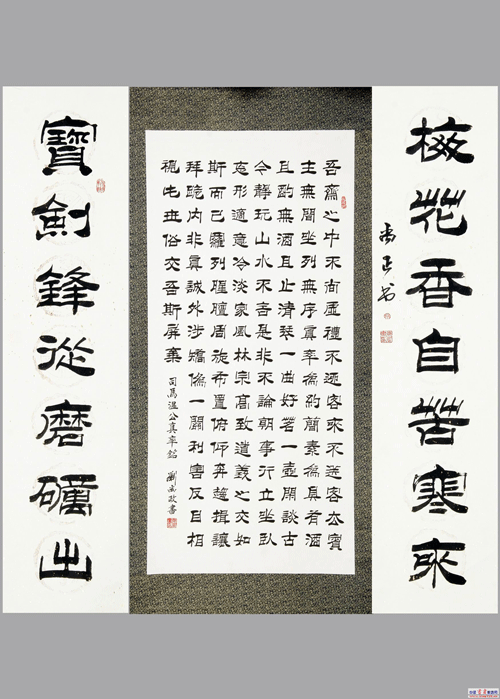 梅花香自苦寒來
吾齋之中不尚虛禮不迎客來不送客去賓
主無間坐列無序真率為約簡素為具有酒
且酌無酒且止清琴一曲好茗一壺閑談古
今靜玩山水不言是非不論朝事行立坐臥
忘形適意冷淡家風林宗高致道義之交如
斯而已羅列腥膻周旋布置俯仰奔趨揖讓
拜跪內非真誠外涉矯偽一關利害反目相
視此世俗交吾斯屏棄
司馬溫公真率銘 劉 政書
寶劍鋒從磨礪出